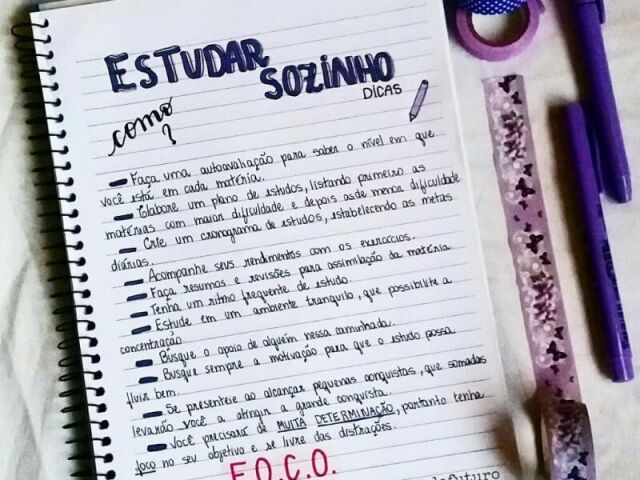 ESTUDAR
SOZINHO
DICAS
como
?
- Faça uma autoavaliação para saber o nível em que
você está em cada matéria.
- Elabore um plano de estudos, listando primeiro as
matérias com maior dificuldade e depois as de menor dificuldade
- Crie um cronograma de estudos, estabelecendo as metas
diárias.
- Acompanhe seus rendimentos com os exercícios.
- Faça resumos e revisões para assimilação da matéria.
- Tenha um ritmo frequente de estudo.
- Estude em um ambiente tranquilo, que possibilite a
concentração
- Busque o apoio de alguém nessa caminhada.
- Busque sempre a motivação para que o estudo possa
fluir bem.
- Se presenteie ao alcançar pequenas conquistas, que somadas
levarão você a atingir a grande conquista.
- Você precisará de MUITA DETERMINAÇÃO, portanto tenha
foco no seu objetivo e se livre das distrações.
F.O.C.O.
futuro